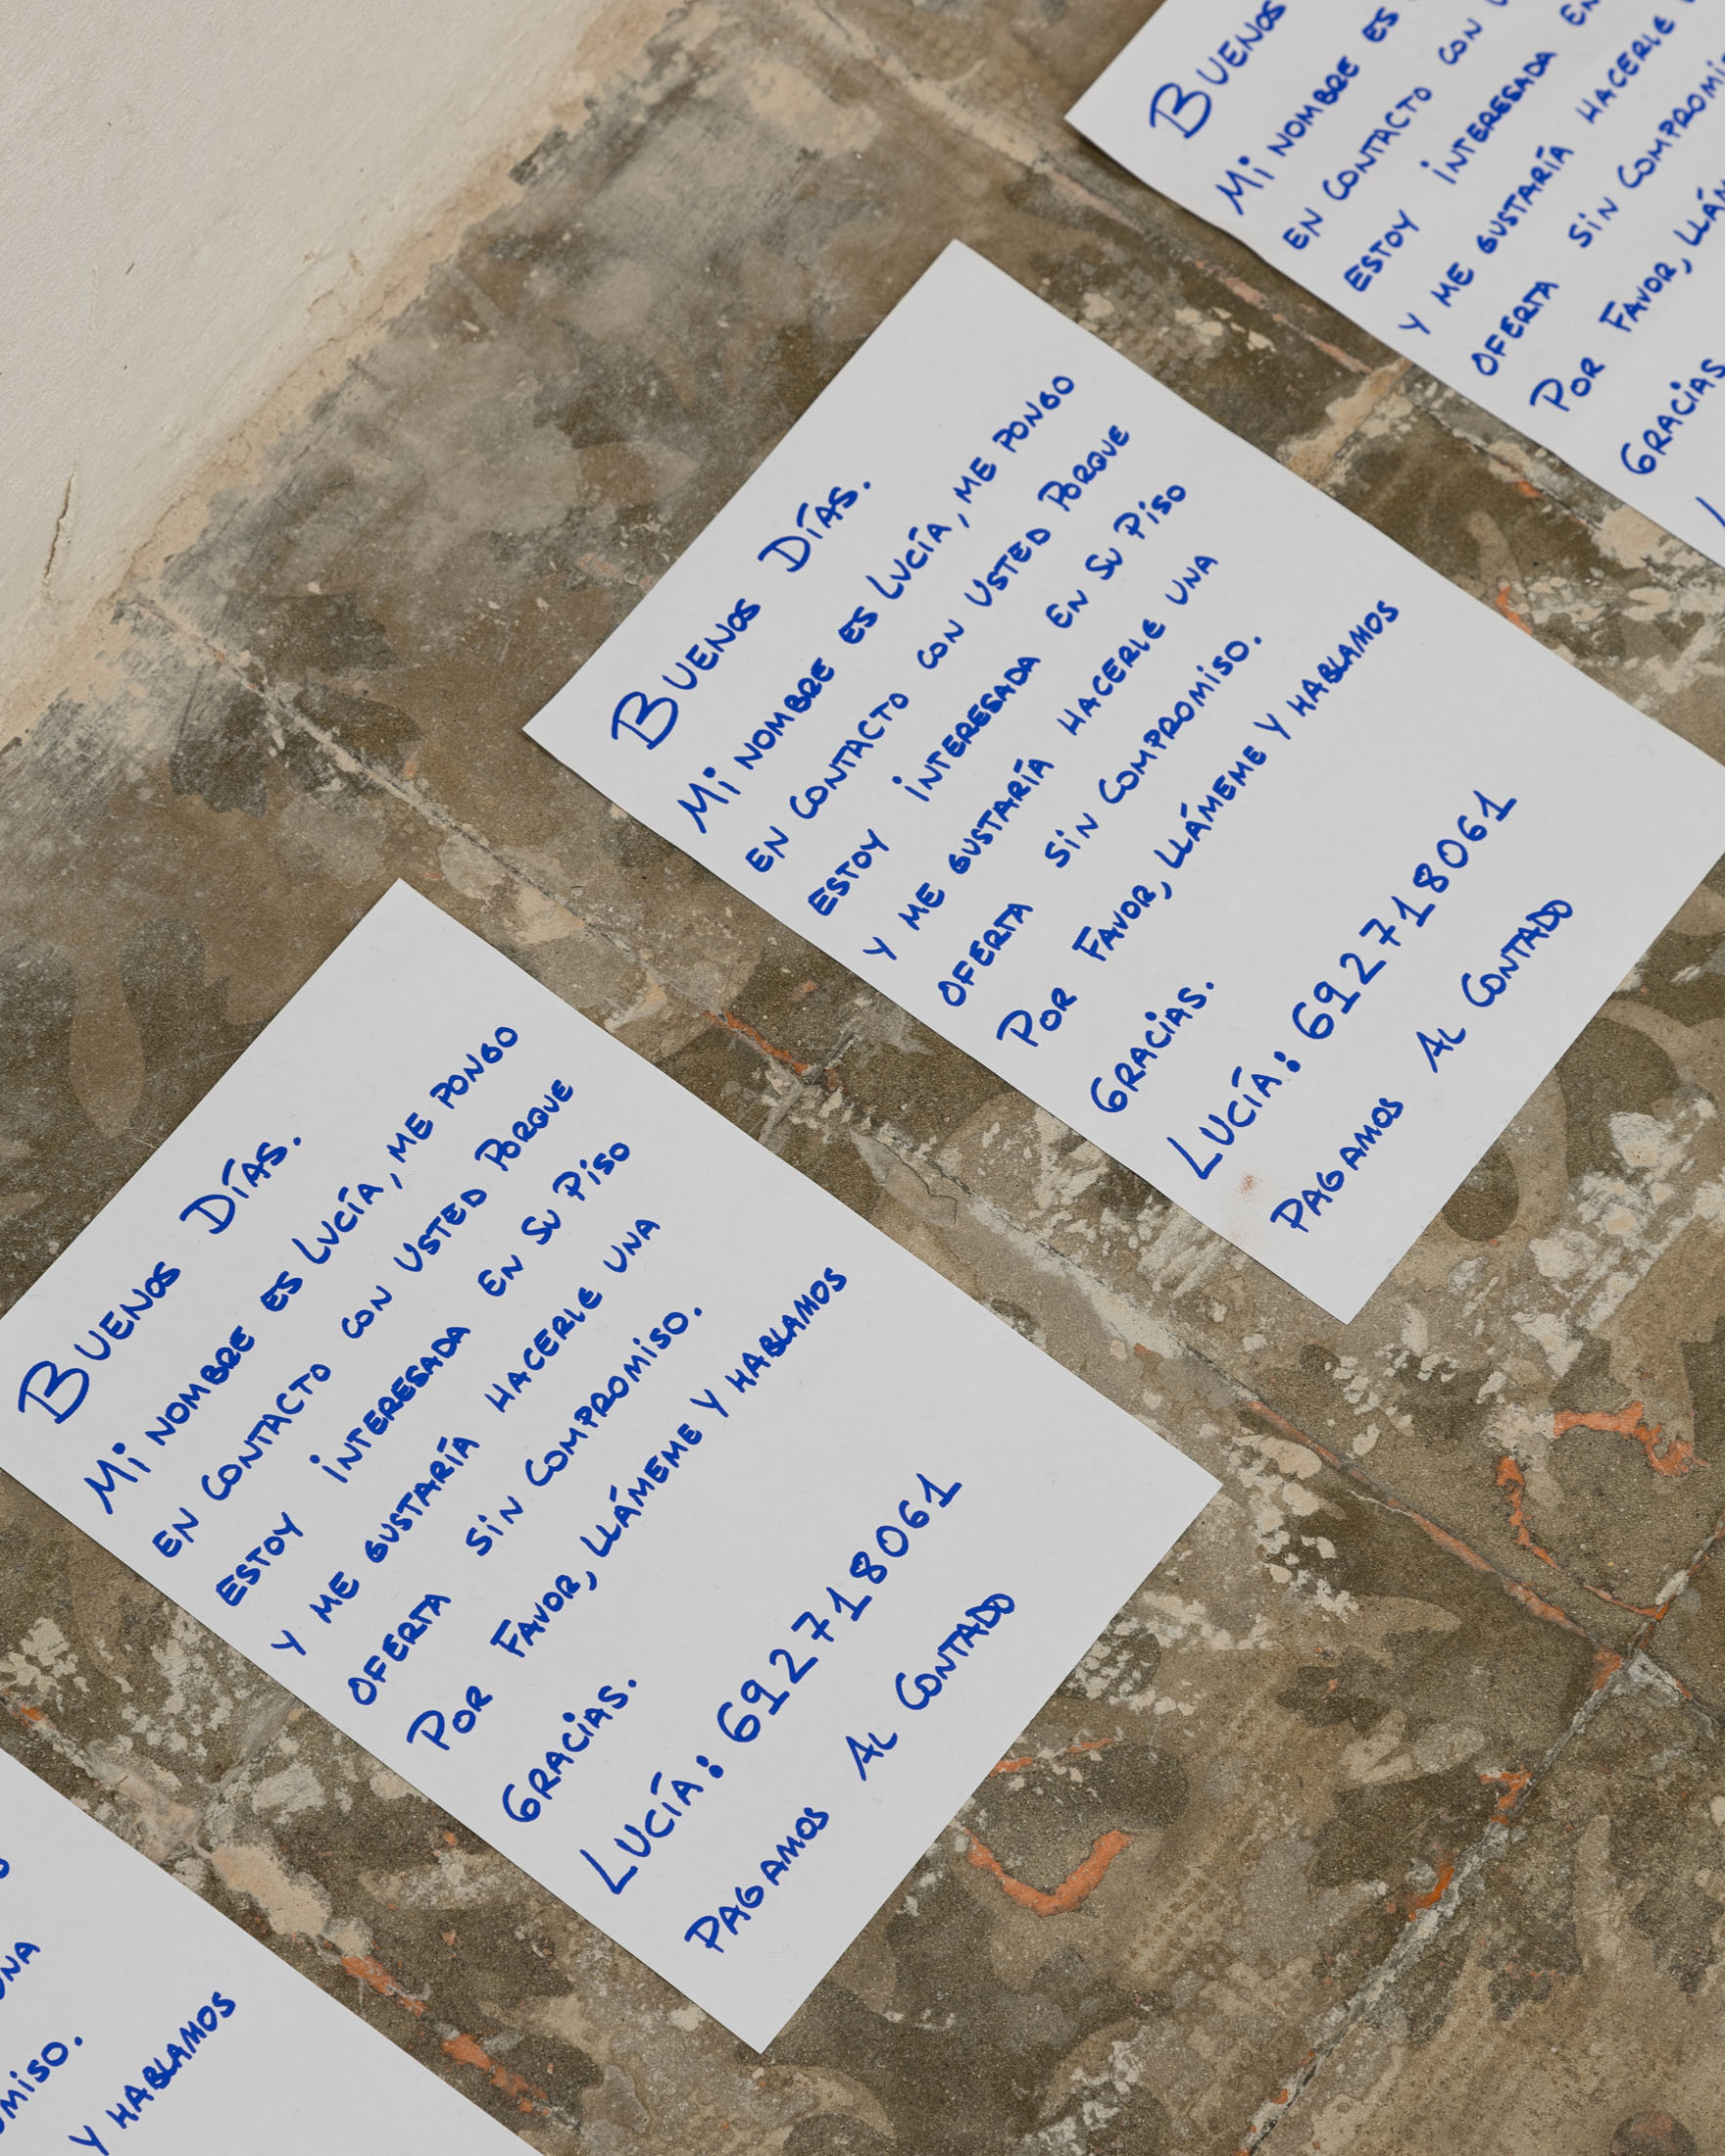 BUENOS
MI NOMBRE ES
EN CONTACTO CON
ESTOY INTERESADA EN
Y ME GUSTARÍA HACERLE
OFERTA SIN COMPROMI
POR FAVOR, LLÁM
GRACIAS
BUENOS DÍAS.
MI NOMBRE ES LUCÍA, ME PONGO
EN CONTACTO CON USTED PORQUE
ESTOY INTERESADA EN SU PISO
Y ME GUSTARÍA HACERLE UNA
OFERTA SIN COMPROMISO.
POR FAVOR, LLÁMEME Y HABLAMOS
GRACIAS.
LUCÍA: 692718061
PAGAMOS AL CONTADO
BUENOS DÍAS.
MI NOMBRE ES LUCÍA, ME PONGO
EN CONTACTO CON USTED PORQUE
ESTOY INTERESADA EN SU PISO
Y ME GUSTARÍA HACERLE UNA
OFERTA SIN COMPROMISO.
POR FAVOR, LLÁMEME Y HABLAMOS
GRACIAS.
LUCÍA: 692718061
PAGAMOS AL CONTADO
UNA
OMISO.
Y HABLAMOS